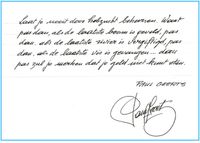 Laat je nooit door hebzucht beheersen. Want
pas dan, als de laatste boom is geveld, pas
dan, als de laatste rivier is vergiftigd, pas
dan, als de laatste vis is gevangen... dan
pas zul je merken dat je geld niet kunt eten.
PAUL GEERTS
Paul Geerts